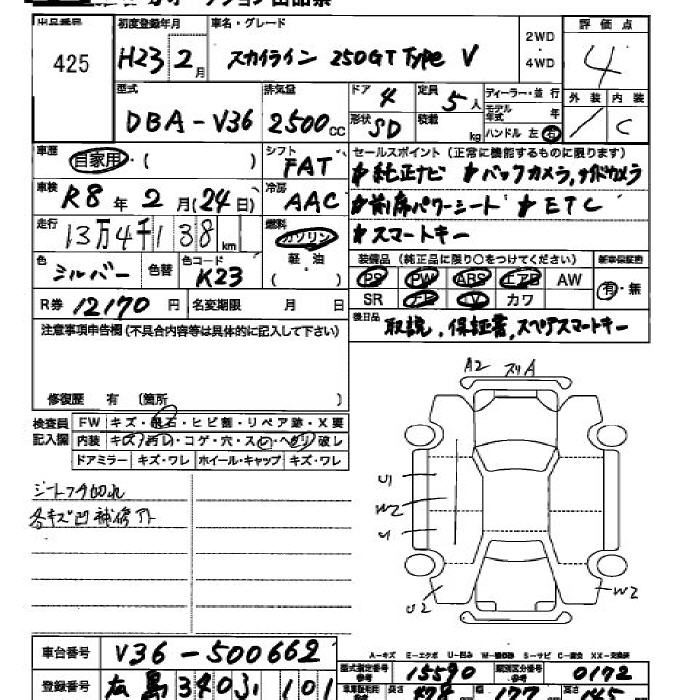 425
初度登録年月 車名・グレード
H23 2月 スカイライン 250GT Type V
2WD
4WD
評価点
4
型式 排気量
DBA-V36 2500cc
ドア 4 定員 5人 ディーラー・並 行
モデル年式 年
形状 SD 積載 kg ハンドル 左 右
外装 内装
/ C
車歴 自家用・( )
シフト FAT
車検 R8年 2月(24日)
冷房 AAC
走行 13万4千138km
燃料 ガソリン
軽・油
( )
色 シルバー 色替 色コード K23
R券 12170円 名変期限 月 日
セールスポイント (正常に機能するものに限ります)
純正ナビ バックカメラ,サイドカメラ
前席パワーシート ETC
スマートキー
装備品 (純正品に限り○をつけてください) 新車保証書
PS PW ABS エアB AW
SR ナビ TV カワ
有・無
後日品 取説、保証書、スペアスマートキー
注意事項申告欄(不具合内容等は具体的に記入して下さい)
修復歴 有 (箇所 )
検査員記入欄
FW キズ・飛石・ヒビ割・リペア跡・X要
内装 キズ・汚レ・コゲ・穴・スレ・ヘタリ・破レ
ドアミラー キズ・ワレ ホイール・キャップ キズ・ワレ
シートフチ切れ
各キズ凹補修アト
A2 スリA
U1
W2
U
U2
W2
車台番号 V36-500662
A-キズ E-エクボ U-凹み
型式指定番号 15590 類別区分番号 0172 高さ
登録番号
長さ 幅